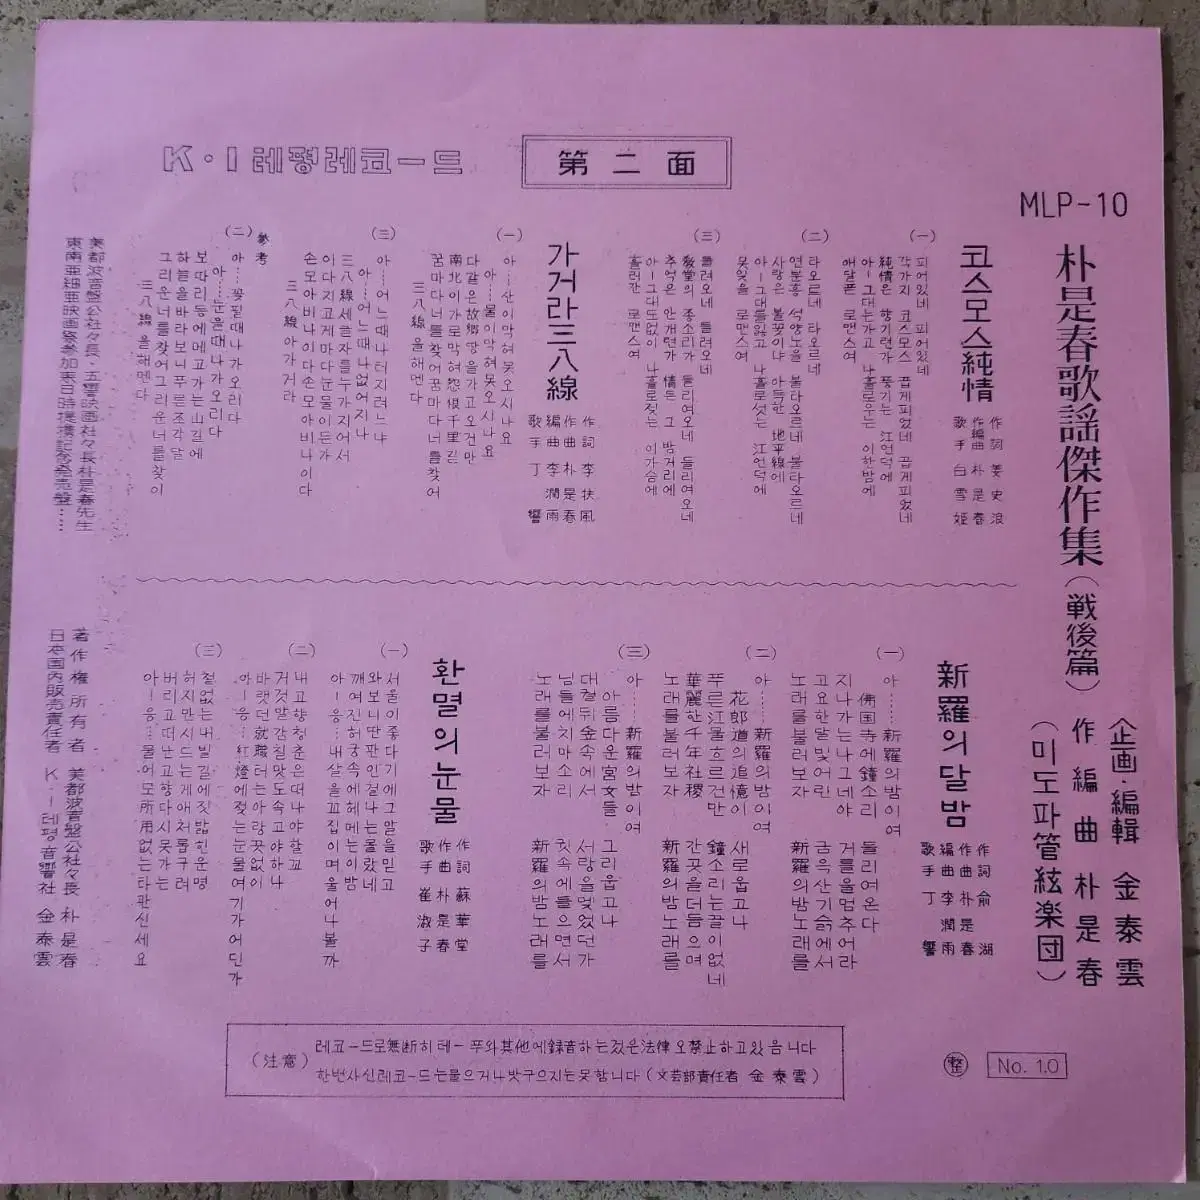 K·I 레평레코ー드
第二面
MLP-10
朴是春歌謡傑作集(戦後篇)
企画·編輯 金泰雲
作編曲 朴是春
(미도파管絃楽団)
코스모스純情
作詞 姜史浪
作編曲 朴是春
歌手 白雪姫
(一)
피어있네 피어있네
각가지 코스모스 곱게피었네 곱게피었네
純情은 향기련가 풍기는 江언덕에
아ー그대는가고 나홀로우는 이한밤에
애달픈 로맨스여
(二)
타오르네 타오르네
연분홍 석양노을 불타오르네 불타오르네
사랑은 불꽃이냐 아득한 地平線에
아ー그대를잃고 나홀로섯는 江언덕에
못잊을 로맨스여
(三)
들려오네 들려오네
敎堂의 종소리가 들리여오네 들리여오네
추억은 안개련가 情든 그 밤거리에
아ー그대도없이 나홀로젖는 이가슴에
흘러간 로맨스여
가거라三八線
作詞 李扶風
作曲 朴是春
編曲 李潤雨
歌手 丁響
(一)
아…산이막혀못오시나요
아…물이막혀못오시나요
다같은故郷땅을가고오건만
南北이가로막혀怨恨千里길
꿈마다너를찾어꿈마다너를찾어
三八線을헤멘다
(三)
아…어느때나터지려느냐
아…어느때나없어지나
三八線세글자를누가지어서
이다지고게마다눈물이든가
손모아비나이다손모아비나이다
三八線아가거라
参考
(二)
아…꽃필때나가오리다
아…눈을때나가오리다
보따리등에메고가는山길에
하늘을바라보니푸른조각달
그리운너를찾어그리운너를찾이
三八線을헤멘다
美都波音盤公社々長·五響映画社々長朴是春先生
東南亜細亜映画祭参加来日時提携記念発売盤……
新羅의달밤
作詞 俞湖
作曲 朴是春
編曲 李潤雨
歌手 丁響
(一)
아……新羅의밤이여
佛国寺에鐘소리 들리여온다
지나가는나그네야 거름을멈추어라
고요한달빛어린 금옥산기슭에서
노래를불러보자 新羅의밤노래를
(二)
아……新羅의밤이여
花郎道의追憶이 새로웁고나
푸른江물흐르건만 鐘소리는끝이없네
華麗한千年社稷 간곳을더듬으며
노래를불러보자 新羅의밤노래를
(三)
아……新羅의밤이여
아름다운宮女들 그리웁고나
대궐뒤숲속에서 서랑을맺었던가
님들에치마소리 귓속에들으면서
노래를불러보자 新羅의밤노래를
환멸의눈물
作詞 蘇華堂
作曲 朴是春
歌手 崔淑子
(一)
서울이좋다기에그말을믿고
와보니딴판인걸나는몰랐네
깨여진허공속에헤메는이밤
아ー응…내살을꼬집이며울어나볼까
(二)
내고향청춘은떠나야할꼬
거짓말간칠맛도속고야하나
바랫던就職러는아랑곳없이
아ー응…紅燈에젖는눈물여기가어딘가
(三)
철없는내발길에짓밟힌운명
허지만시드는게애처롭구려
버리고떠난고향다시못가는
아ー응…물어모所用없는타판신세요
著作権所有者 美都波音盤公社々長 朴是春
日本国内販売責任者 K·I레평音響社 金泰雲
(注意) 레코ー드로無断히테ー푸와其他에録音하는것은法律오禁止하고있음니다
한번사신레코ー드는물으거나밧구으지는못합니다(文芸部責任者 金泰雲)
整 No. 10